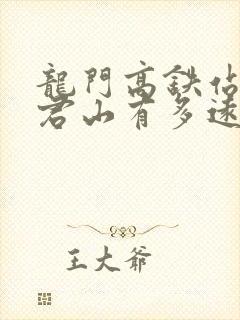 龍門高鉄佔
君山有多遠
王大爺